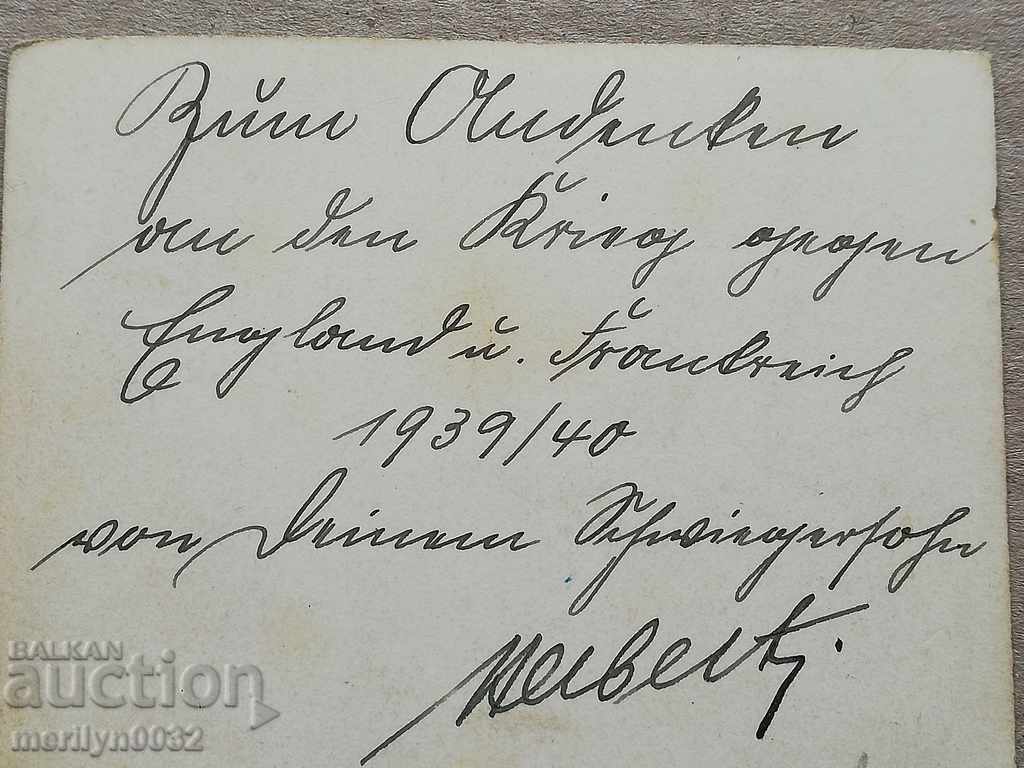 Zum Andenken
an den Krieg gegen
England u. Frankreich
1939/40
von Deinem Schwiegersohn
Herbert.
BALKAN
auction
merilyn0032